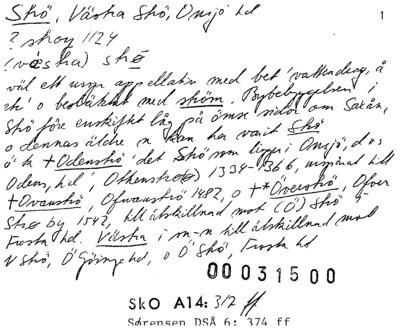 Skö, Västra Skö, Onsjö hd 1
? skoy 1124
(vä́stra) skö
väl ett urspr appellativ med bet 'vattendrag, å
etc' o besläktat med sköm. Bybebyggelsen i
Skö före enskiftet låg på ömse sidor om Saxån,
o dennas äldre n kan ha varit Skö
ö k +Odenskö 'det Skö som ligger i Onsjö, dvs
Odens, hd', Othenskø 1334-1366, urspr till
+Ovanskö, Ofwanskö 1482, o +*Överskö, Ofver
Skø by 1542, till åtskillnad mot (Ö) Skö i
Frosta hd. Västra i s-n till åtskillnad mot
N Skö, Ö Göinge hd, o Ö Skö, Frosta hd
00031500
SkO A14: 3/2 ff
Sørensen DSÅ 6: 374 ff